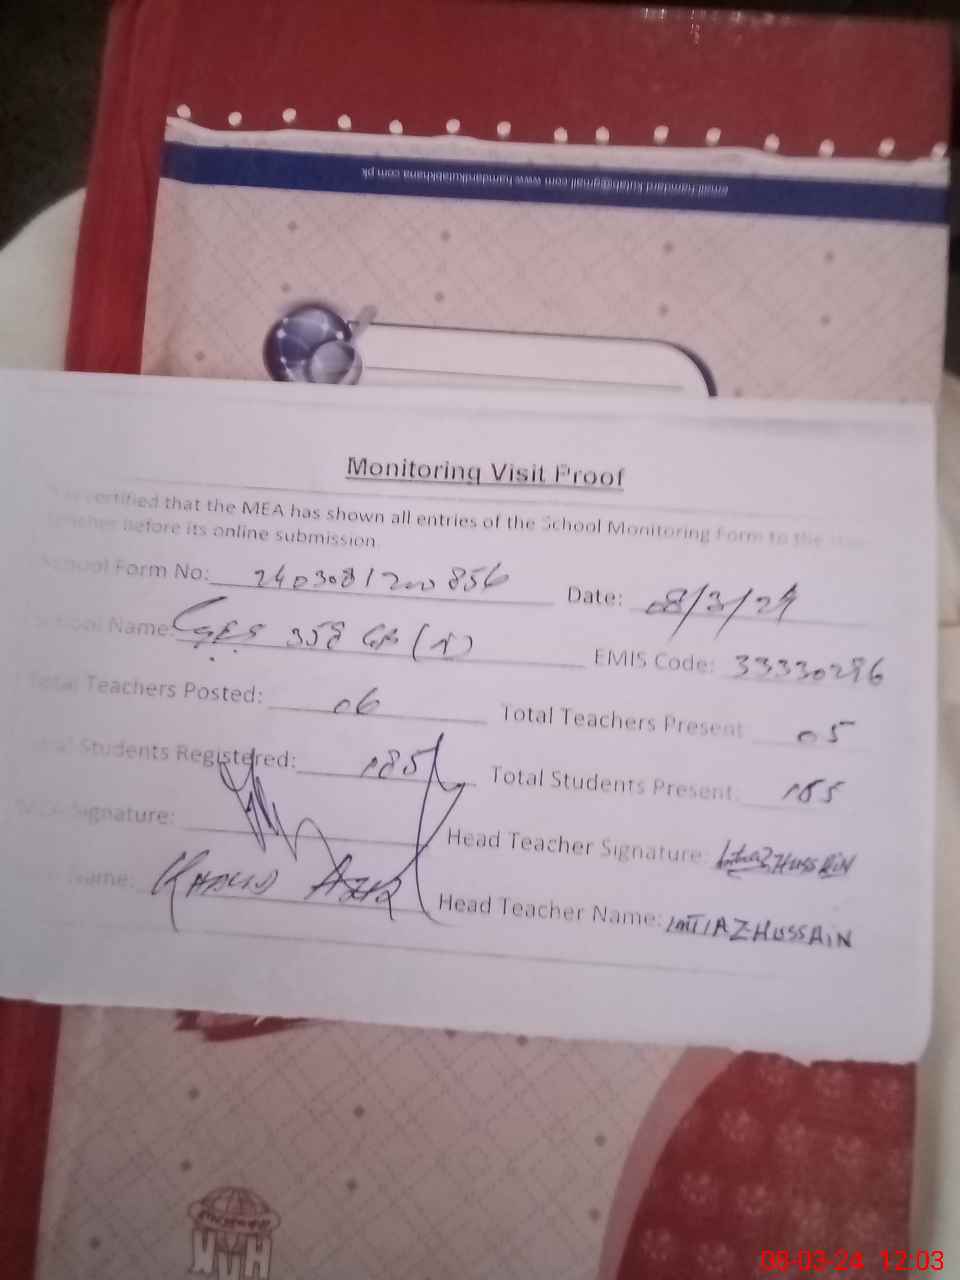 email hamdard.kutab@gmail.com www.hamdardkutabkhana.com.pk
Monitoring Visit Proof
certified that the MEA has shown all entries of the School Monitoring Form to the
teacher before its online submission.
School Form No: 2403081200856 Date: 08/3/24
School Name: 358 GB EMIS Code: 33330296
Total Teachers Posted: 06 Total Teachers Present 05
Total Students Registered: 185 Total Students Present: 155
MEA Signature: Head Teacher Signature: Imtiaz Hussain
Name: KHALID Head Teacher Name: IMTIAZ HUSSAIN
08-03-24 12:03